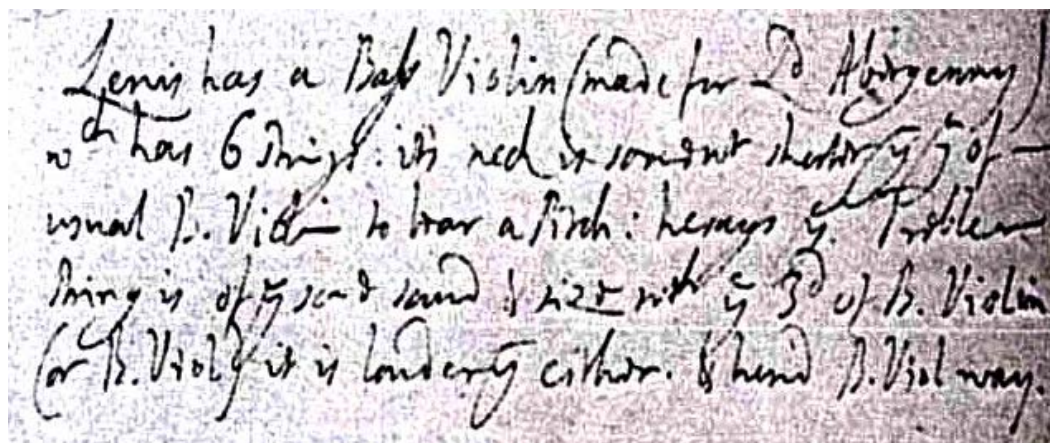 Lewis has a Bass Violin (made for Ld Abergenny)
wch has 6 strings: its neck is somewt shorter yn yt of
usual B. Violin to bear a Pitch: he says ye. Treble
string is of ye same sound & size with ye 3d of B. Violin
(or B. Viol) it is louder yn either. & tun'd B. Viol way.